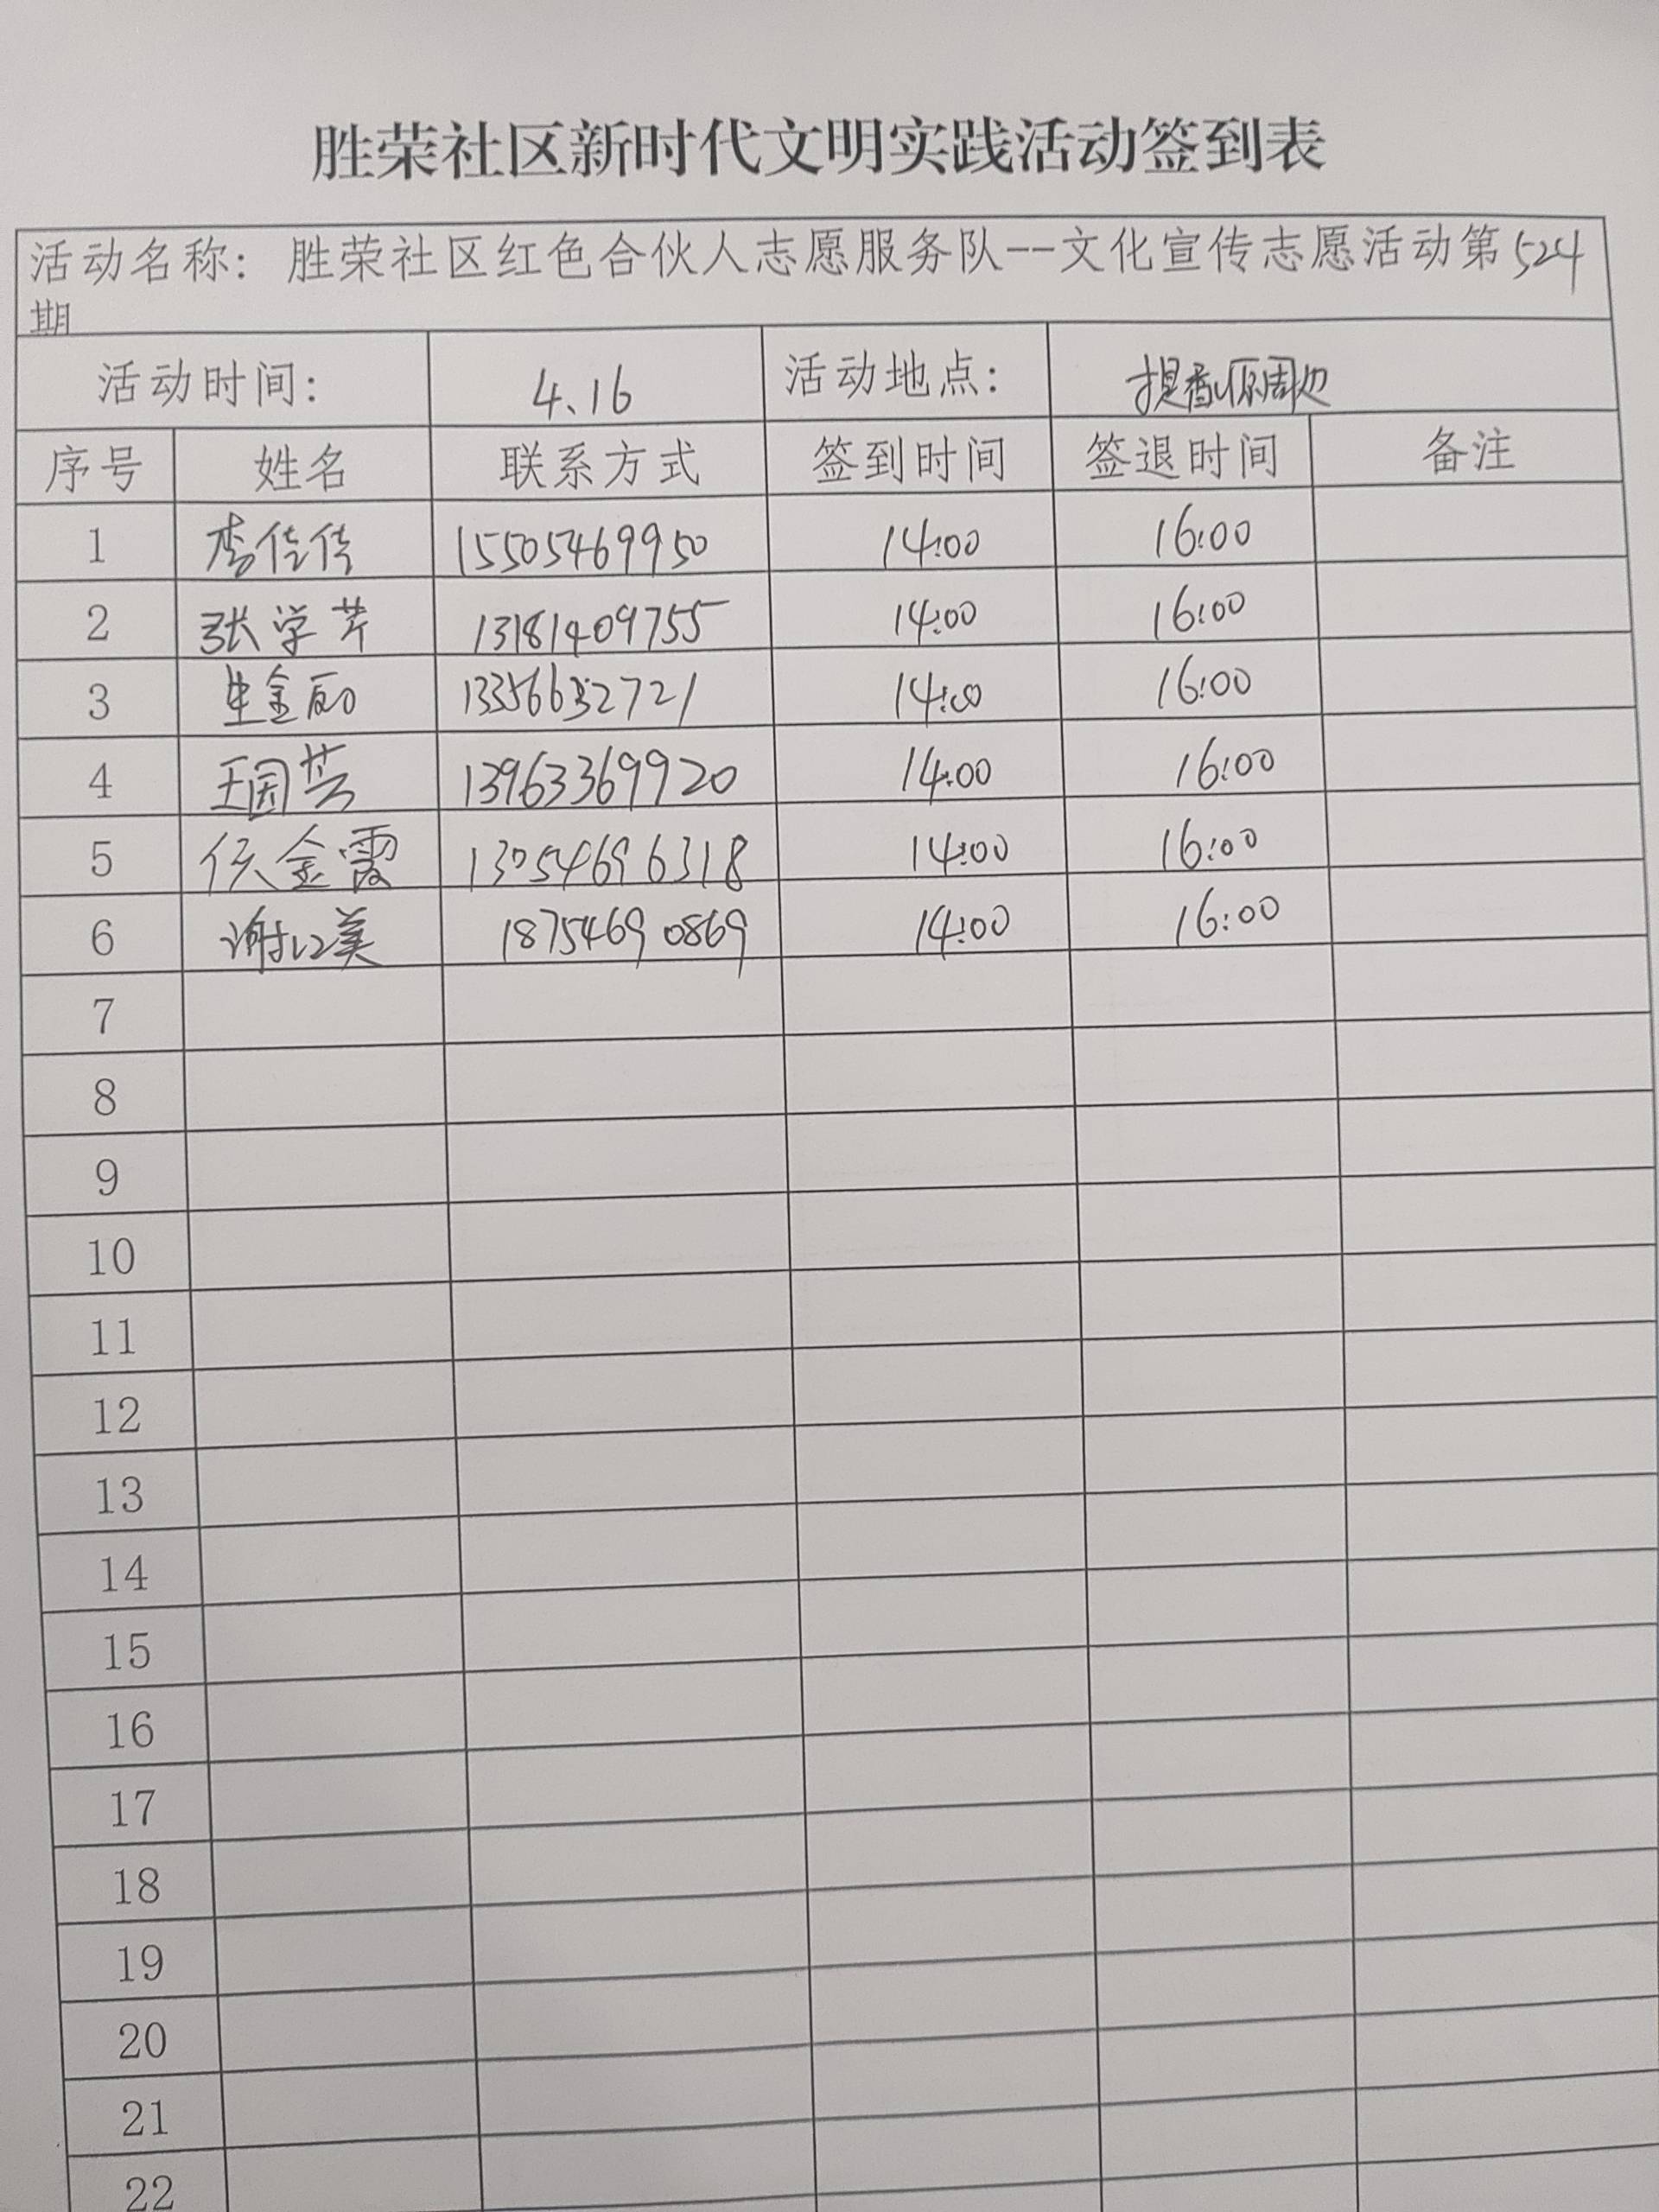 胜荣社区新时代文明实践活动签到表
活动名称：胜荣社区红色合伙人志愿服务队--文化宣传志愿活动第524
期
活动时间： 4.16 活动地点： 提香公馆周边
序号 姓名 联系方式 签到时间 签退时间 备注
1 李佳佳 15505469950 14:00 16:00
2 张学芹 13181409755 14:00 16:00
3 金 14:00 16:00
4 王国芳 13963369920 14:00 16:00
5 任金霞 13054696318 14:00 16:00
6 谢江美 18754690869 14:00 16:00
7
8
9
10
11
12
13
14
15
16
17
18
19
20
21
22